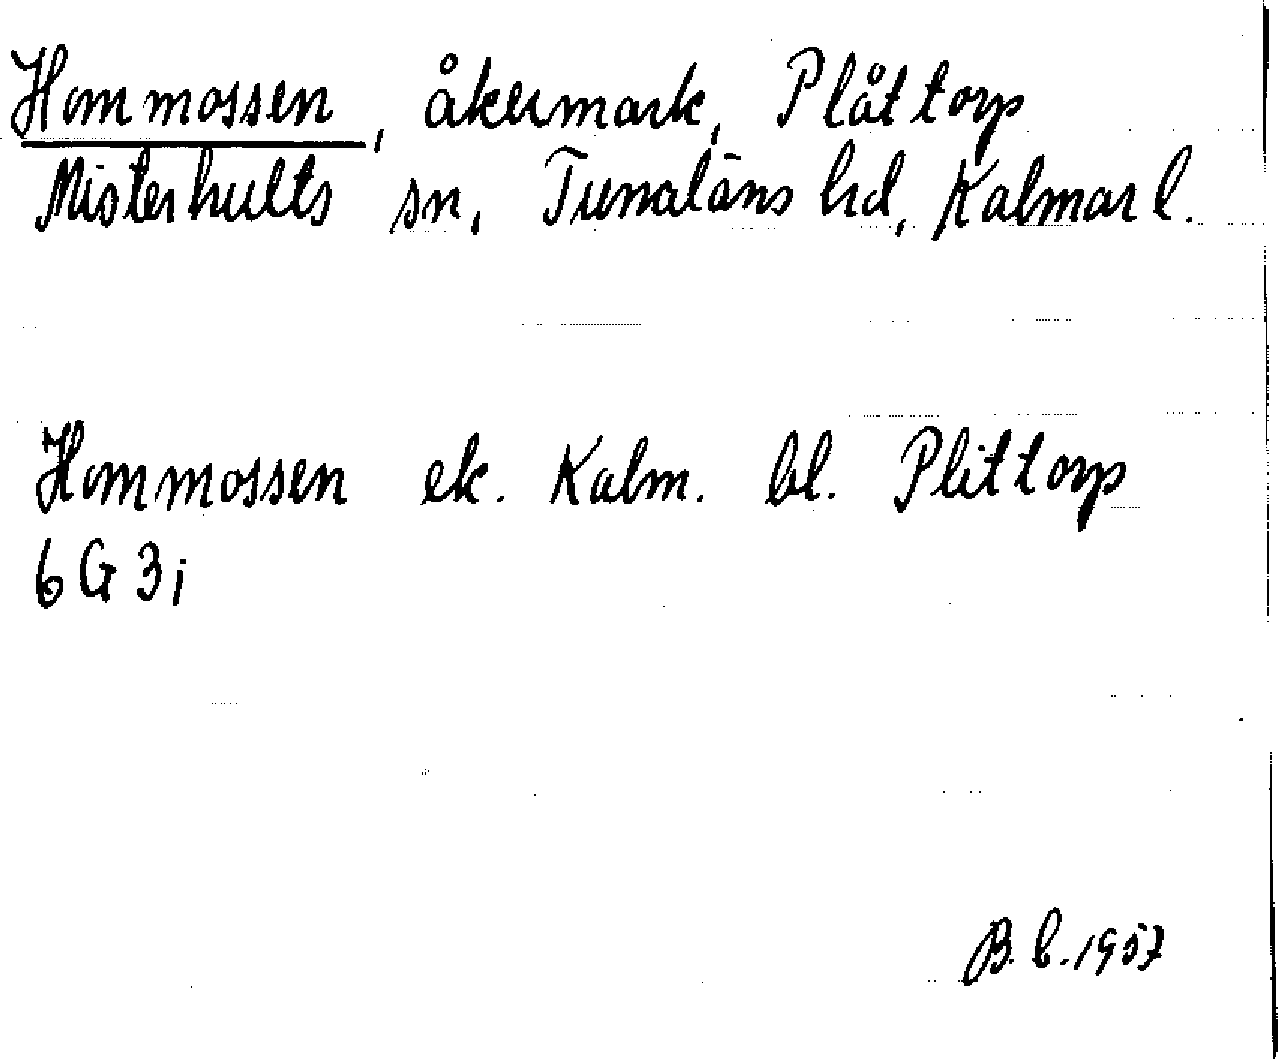 Hommossen, åkermark, Plåttorp
Misterhults sn, Tunaläns hd, Kalmar l.
Hommossen ek. Kalm. bl. Plittorp
6G3i
B.L. 1957